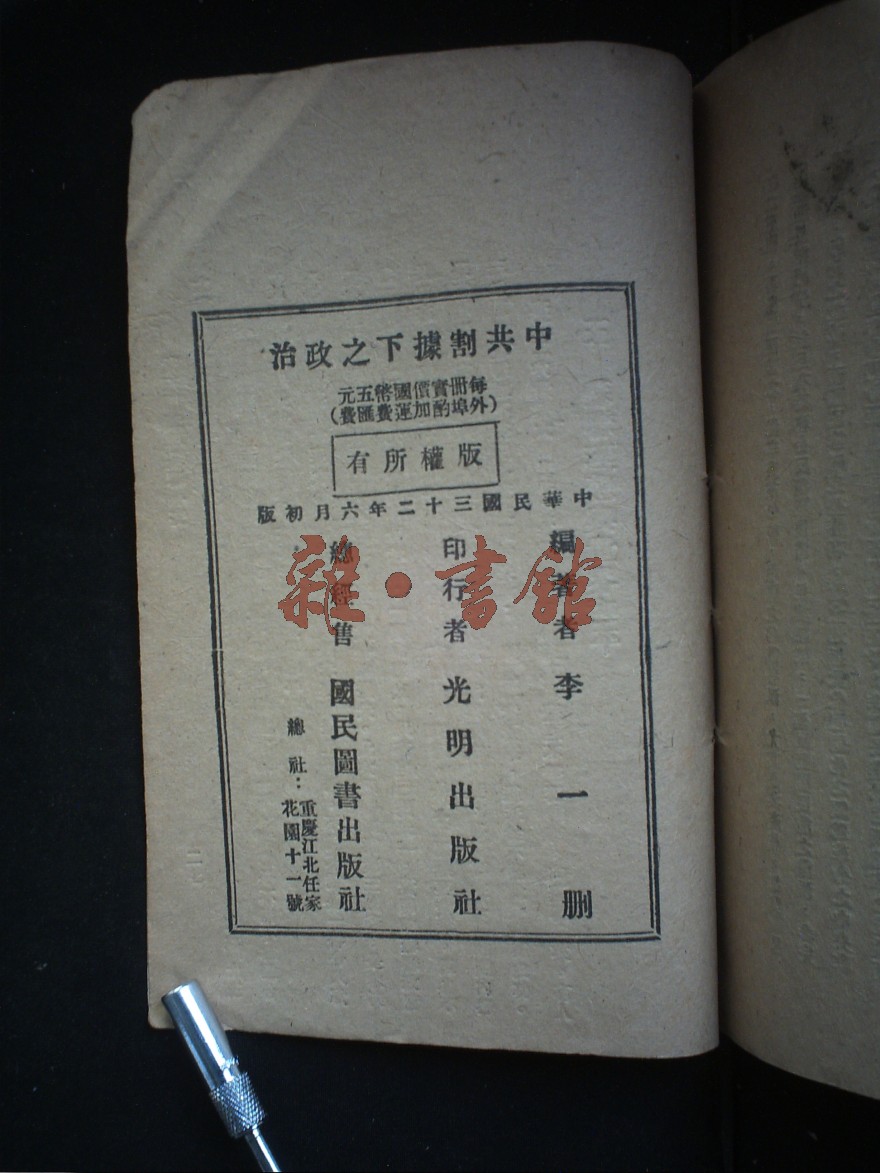 中共割據下之政治
每冊實價國幣五元
(外埠酌加運費匯費)
版權所有
中華民國三十二年六月初版
編著者 李一删
印行者 光明出版社
總經售 國民圖書出版社
總社：重慶江北任家
花園十一號
雜·書館